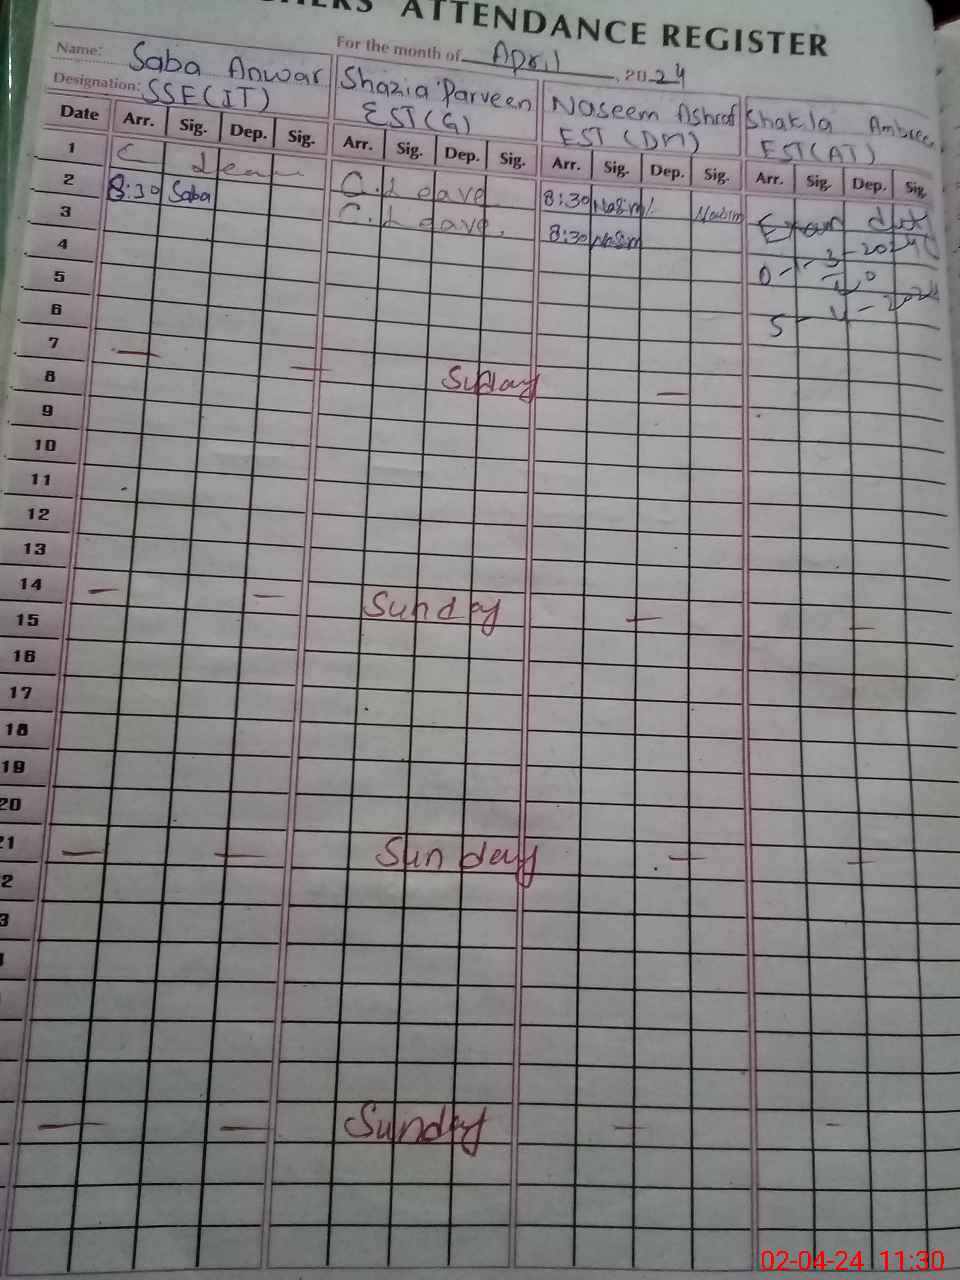 ATTENDANCE REGISTER
For the month of April, 2024
Name: Saba Anwar Shazia Parveen Naseem Ashraf Shakila
Designation: SSE(IT) EST(G) EST(DM) EST(AT)
Date Arr. Sig. Dep. Sig. Arr. Sig. Dep. Sig. Arr. Sig. Dep. Sig. Arr. Sig. Dep. Sig.
1 C leave C.Leave 8:30 Exam duty
2 8:30 Saba C.Leave. 8:30
3
4
5
6
7 — — Sunday —
8
9
10
11
12
13
14 — — Sunday — —
15
16
17
18
19
20
21 — — Sunday — —
2
3
— — Sunday — -
02-04-24 11:30